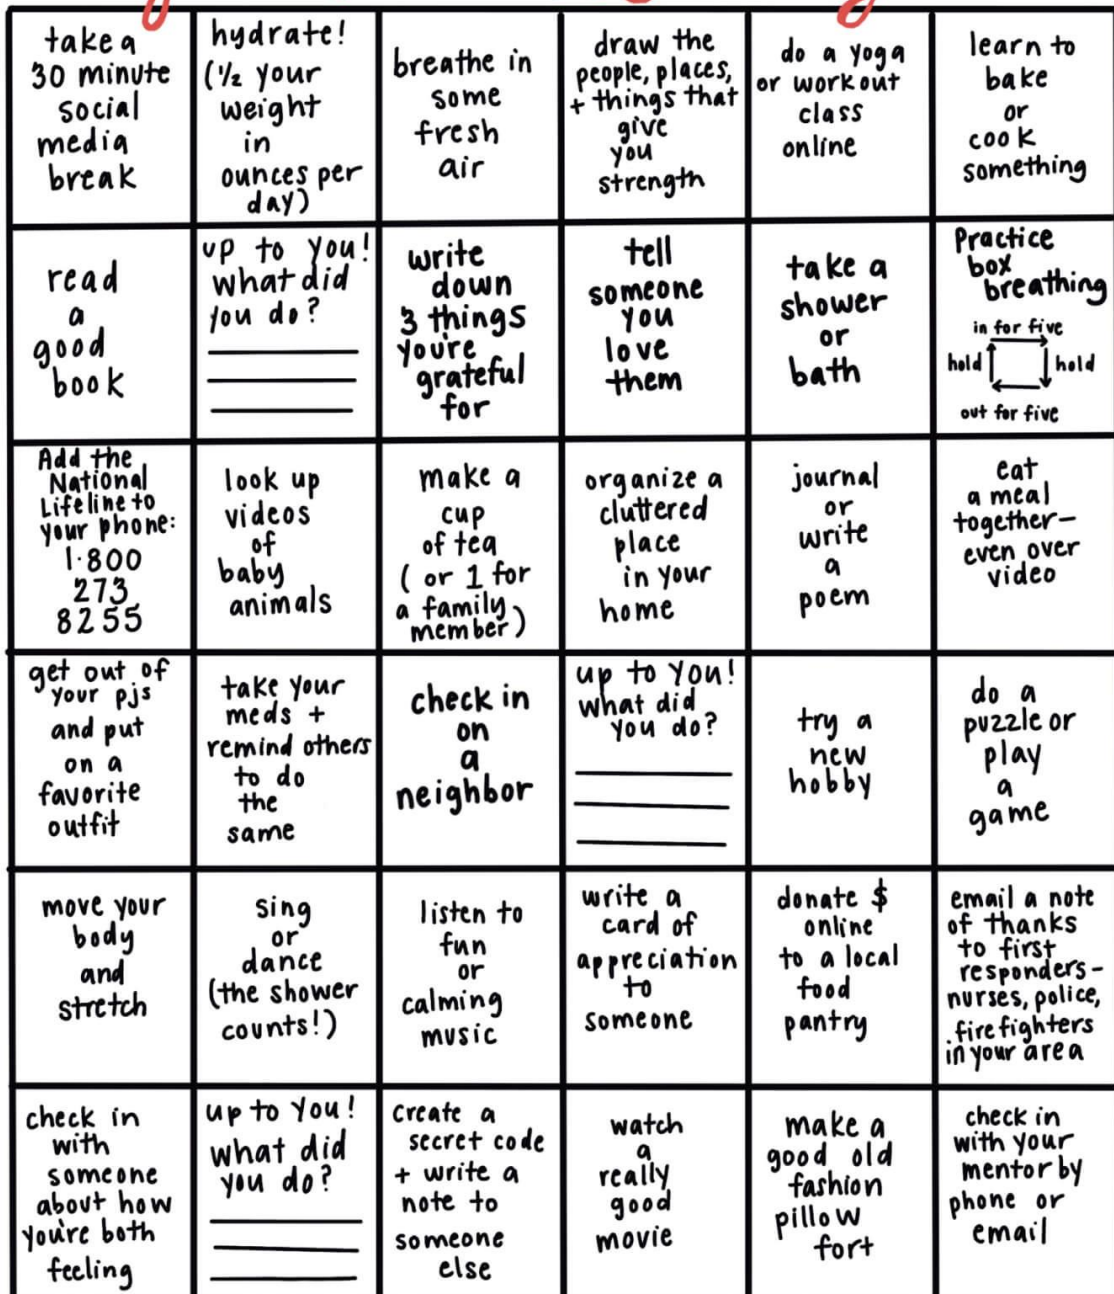 take a
30 minute
social
media
break
hydrate!
(½ your
weight
in
ounces per
day)
breathe in
some
fresh
air
draw the
people, places,
+ things that
give
you
strength
do a yoga
or workout
class
online
learn to
bake
or
cook
something
read
a
good
book
up to you!
what did
you do?
write
down
3 things
you're
grateful
for
tell
someone
you
love
them
take a
shower
or
bath
Practice
box
breathing
in for five
hold
hold
out for five
Add the
National
Lifeline to
your phone:
1·800
273
8255
look up
videos
of
baby
animals
make a
cup
of tea
(or 1 for
a family
member)
organize a
cluttered
place
in your
home
journal
or
write
a
poem
eat
a meal
together-
even over
video
get out of
your pjs
and put
on a
favorite
outfit
take your
meds +
remind others
to do
the
same
check in
on
a
neighbor
up to you!
what did
you do?
try a
new
hobby
do a
puzzle or
play
a
game
move your
body
and
stretch
sing
or
dance
(the shower
counts!)
listen to
fun
or
calming
music
write a
card of
appreciation
to
someone
donate $
online
to a local
food
pantry
email a note
of thanks
to first
responders-
nurses, police,
firefighters
in your area
check in
with
someone
about how
you're both
feeling
up to you!
what did
you do?
create a
secret code
+ write a
note to
someone
else
watch
a
really
good
movie
make a
good old
fashion
pillow
fort
check in
with your
mentor by
phone or
email